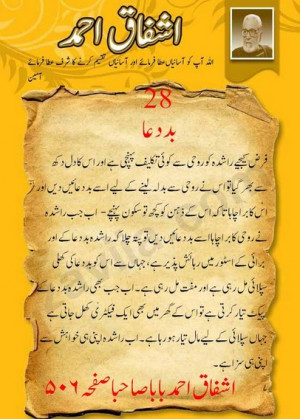 اشفاق احمد
اللہ آپ کو آسانیاں عطا فرمائے اور آسانیاں تقسیم کرنے کا شرف عطا فرمائے
آمین
28
بددعا
فرض کیجیے راشدہ کو روحی سے کوئی تکلیف پہنچی ہے اور اس کا دل دکھ
سے بھر گیا تو اس نے روحی سے بدلہ لینے کے لیے اسے بددعائیں دیں اور
اس کا برا چاہا تاکہ اس کے ذہن کو کچھ تو سکون پہنچے - اب جب راشدہ
نے روحی کا برا چاہا اسے بددعائیں دیں تو پتہ چلا کہ راشدہ بددعا کے اور
برائی کے اسٹور میں رہائش پذیر ہے، جہاں سے اس کو بددعا کی کھلی
سپلائی مل رہی ہے اور مفت مل رہی ہے - اب جب بھی راشدہ بددعا کے
پیکٹ تیار کرتی ہے تو اس کے گھر میں بھی ایک فیکٹری کھل جاتی ہے
جہاں سپلائی کے لیے مال تیار ہو رہا ہے - اب راشدہ اپنی ہی خواہش سے
اپنی ہی سزا ہے -
اشفاق احمد بابا صاحبا صفحہ ۵۰۶